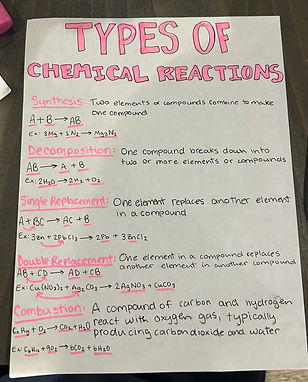 TYPES OF
CHEMICAL REACTIONS
Synthesis: Two elements or compounds combine to make
one compound
A + B → AB
Ex: 3Mg + 1N₂ → Mg₃N₂
Decomposition: One compound breaks down into
two or more elements or compounds
AB → A + B
Ex: 2H₂O → 2H₂ + O₂
Single Replacement: One element replaces another element
in a compound
A + BC → AC + B
Ex: 3Zn + 2PbCl₂ → 2Pb + 3ZnCl₂
Double Replacement: One element in a compound replaces
another element in another compound
AB + CD → AD + CB
Ex: Cu(NO₃)₂ + Ag₂CO₃ → 2AgNO₃ + CuCO₃
Combustion: A compound of carbon and hydrogen
react with oxygen gas, typically
producing carbon dioxide and water
CxHy + O₂ → CO₂ + H₂O
Ex: C₆H₁₂ + 9O₂ → 6CO₂ + 6H₂O